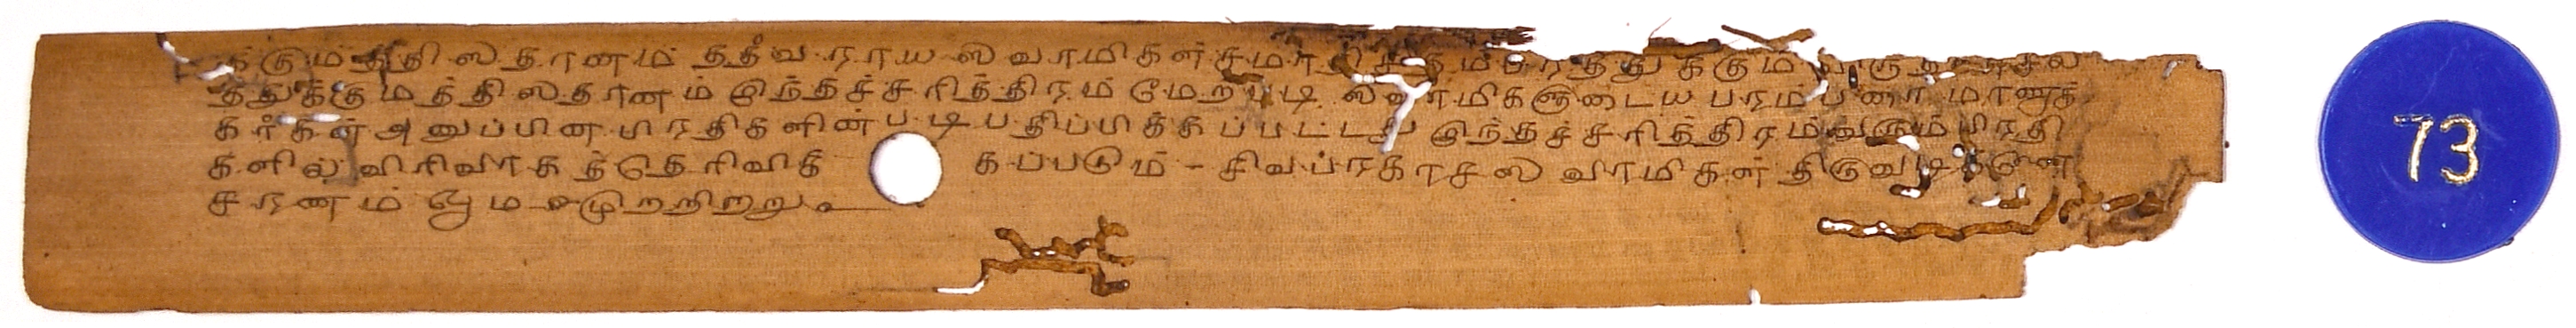 க்கும் த்திஸதானம் தத்வராயஸ்வாமிகள் சமா
த்துக்கு மத்திஸதானம் இந்தச்சரித்திரம் மேற்படி ஸ்வாமிகளுடைய பரம்பரை மாணாக்
கர்கள் அனுப்பின பிரதிகளின்படி பதிப்பிக்கப்பட்டது இந்தச்சரித்திரம் வரும் பிரதி
களில் விரிவாகத்தெரிவிக் கப்படும் - சிவப்ரகாசஸ்வாமிகள் திருவடிக்கண்
சரணம் முற்றிற்று
73